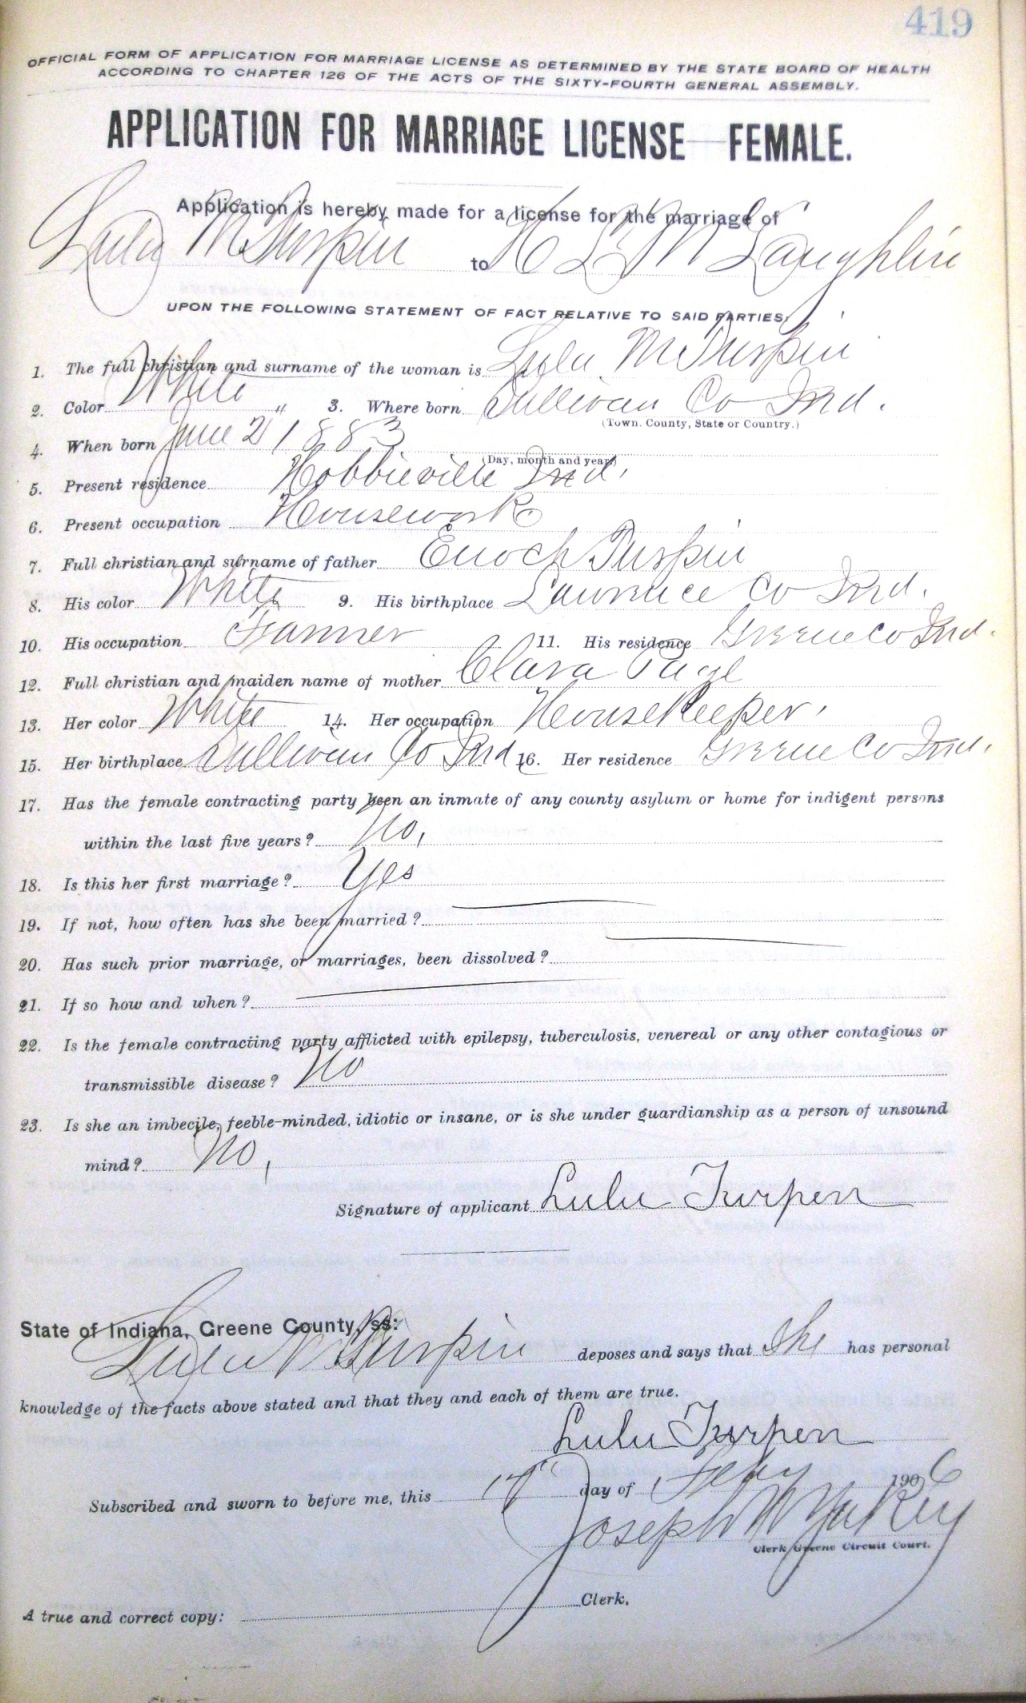 419
OFFICIAL FORM OF APPLICATION FOR MARRIAGE LICENSE AS DETERMINED BY THE STATE BOARD OF HEALTH
ACCORDING TO CHAPTER 126 OF THE ACTS OF THE SIXTY-FOURTH GENERAL ASSEMBLY.
APPLICATION FOR MARRIAGE LICENSE—FEMALE.
Application is hereby made for a license for the marriage of
Lulu M Turpin to McLaughlin
UPON THE FOLLOWING STATEMENT OF FACT RELATIVE TO SAID PARTIES:
1. The full christian and surname of the woman is Lulu M Turpin
2. Color White 3. Where born Sullivan Co Ind.
(Town. County, State or Country.)
4. When born June 21 1883
(Day, month and year)
5. Present residence Hobbieville Ind.
6. Present occupation Housework
7. Full christian and surname of father Enoch Turpin
8. His color White 9. His birthplace Lawrence Co Ind.
10. His occupation Farmer 11. His residence Greene Co Ind.
12. Full christian and maiden name of mother Clara Page
13. Her color White 14. Her occupation Housekeeper.
15. Her birthplace Sullivan Co Ind 16. Her residence Greene Co Ind.
17. Has the female contracting party been an inmate of any county asylum or home for indigent persons
within the last five years? No.
18. Is this her first marriage? Yes
19. If not, how often has she been married?
20. Has such prior marriage, or marriages, been dissolved?
21. If so how and when?
22. Is the female contracting party afflicted with epilepsy, tuberculosis, venereal or any other contagious or
transmissible disease? No
23. Is she an imbecile, feeble-minded, idiotic or insane, or is she under guardianship as a person of unsound
mind? No.
Signature of applicant Lulu Turpen
State of Indiana, Greene County, ss:
Lulu M Turpin deposes and says that She has personal
knowledge of the facts above stated and that they and each of them are true.
Lulu Turpen
Subscribed and sworn to before me, this 17" day of Feby 1906
Joseph W Yakey
Clerk Greene Circuit Court.
A true and correct copy: Clerk.